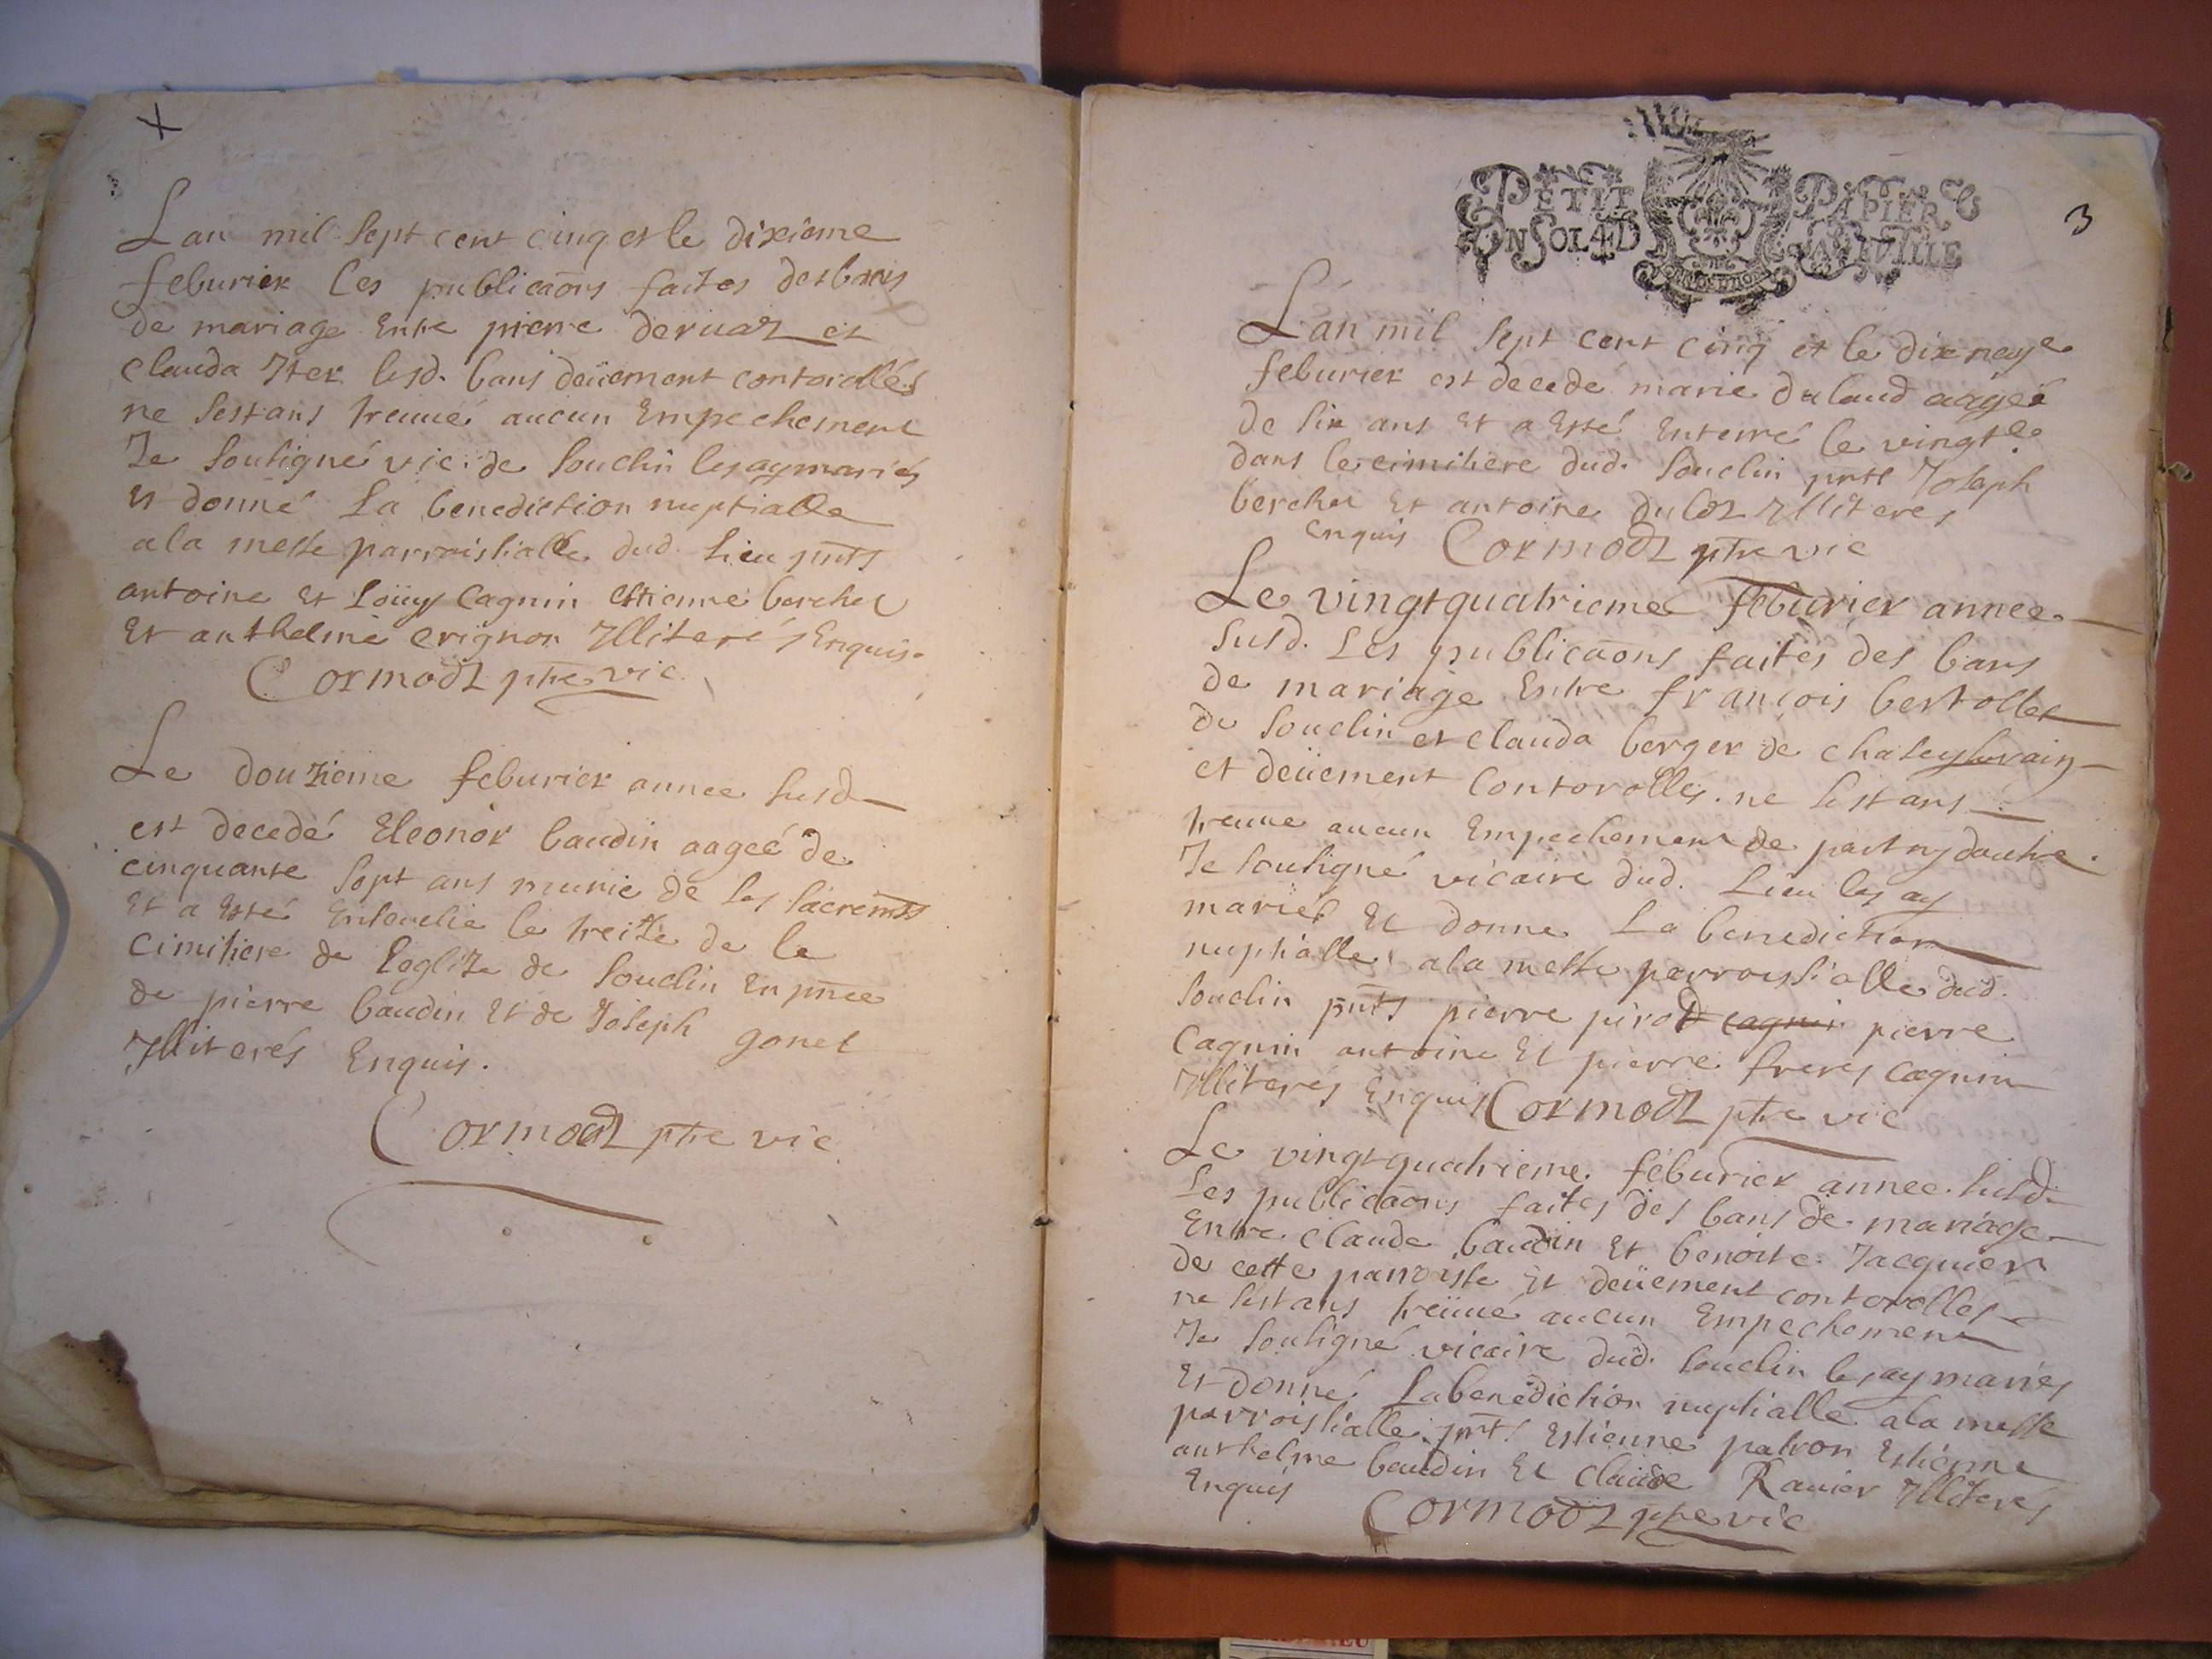 Lan mil sept cent cinq et le dixieme
feburier les publicaons faites des bans
de mariage Entre pierre deruaz et
clauda Iter lesd. bans deüement contorollés
ne sestans treuué aucun Empechement
Je soutigné vic. de souclin les ay mariés
et donné La benediction nuptialle
a la messe parroissialle dud. Lieu pnts
antoine Et Loüys cagnin estienne berchet
Et anthelme crignon Illiterés Enquis.
Cormodz ptre vic.
Le douzieme feburier annee susd
est decedé Eleonor baudin aageé de
cinquante sept ans munie de ses sacremts
Et a Esté Enseuelie le treize de le
cimitiere de Leglize de souclin En pnce
de pierre baudin Et de Joseph gonet
Illiterés Enquis.
Cormodz ptre vic
PETIT PAPIER
ON SOL 4 D LA FEUILLE
3
Lan mil sept cent cinq et le dix neuf e
feburier est decedé marie dulaud aageé
de six ans Et a Esté Enterré le vingt e
dans le cimitiere dud. souclin pnts Joseph
berchet Et antoine duloz Illiteres
Enquis Cormodz ptre vic
Le vingtquatrieme feburier annee
susd. Les publicaons faites des bans
de mariage Entre francois bertollet
de souclin et clauda berger de chaley
et deüement Contorollés. ne sestans
treuue aucun Empechement de part ny dautre.
Je soutigné vicaire dud. Lieu les ay
mariés Et donne La benediction
nuptialle a la messe parroyssialle dud.
souclin pnts pierre pirod cagnin pierre
Cagnin antoine Et pierre freres cagnin
Illiterés Enquis Cormodz ptre vic
Le vingtquatrieme feburier annee susd.
Les publicaons faites des bans de mariage
Entre claude baudin Et benoite Jacquier
de cette parroysse Et deüement contorollés
ne sestans treüué aucun Empechement
Je soutigné vicaire dud. souclin les ay mariés
Et donné La benediction nuptialle a la messe
parroissialle pnts Estienne patron Estienne
anthelme baudin Et claude Rauier Illiterés
Enquis Cormodz ptre vic